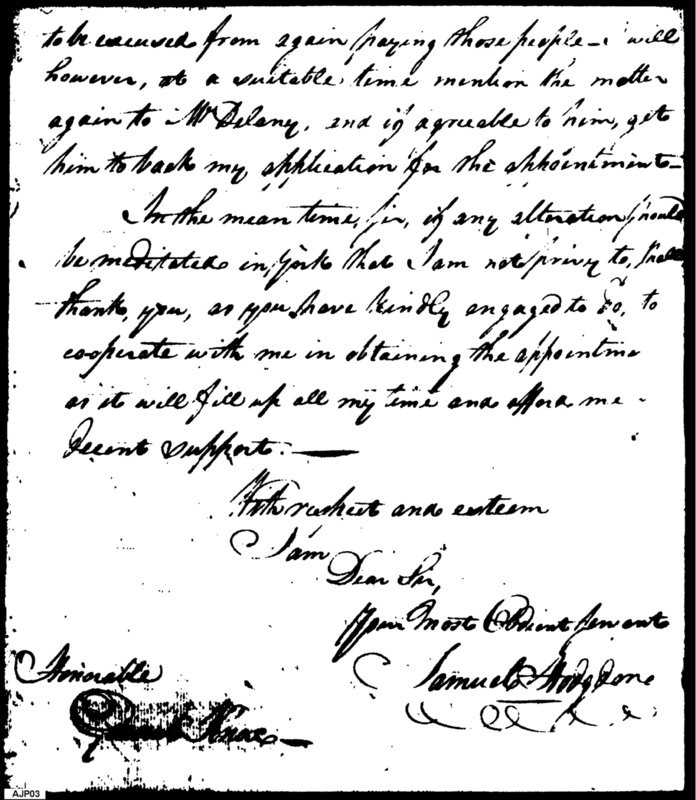 to be excused from again paying those people — I will
however, at a suitable time mention the matter
again to Mr Delany, and if agreeable to him, get
him to back my application for the appointment —
In the mean time, sir, if any alteration should
be meditated in York that I am not privy to, shall
thank you, as you have kindly engaged to do, to
cooperate with me in obtaining the appointme
as it will fill up all my time and afford me
decent support. —
With respect and esteem
I am
Dear Sir,
Your Most Obedient Servant
Samuel Hodgdone
Honorable
Knox —
AJP03